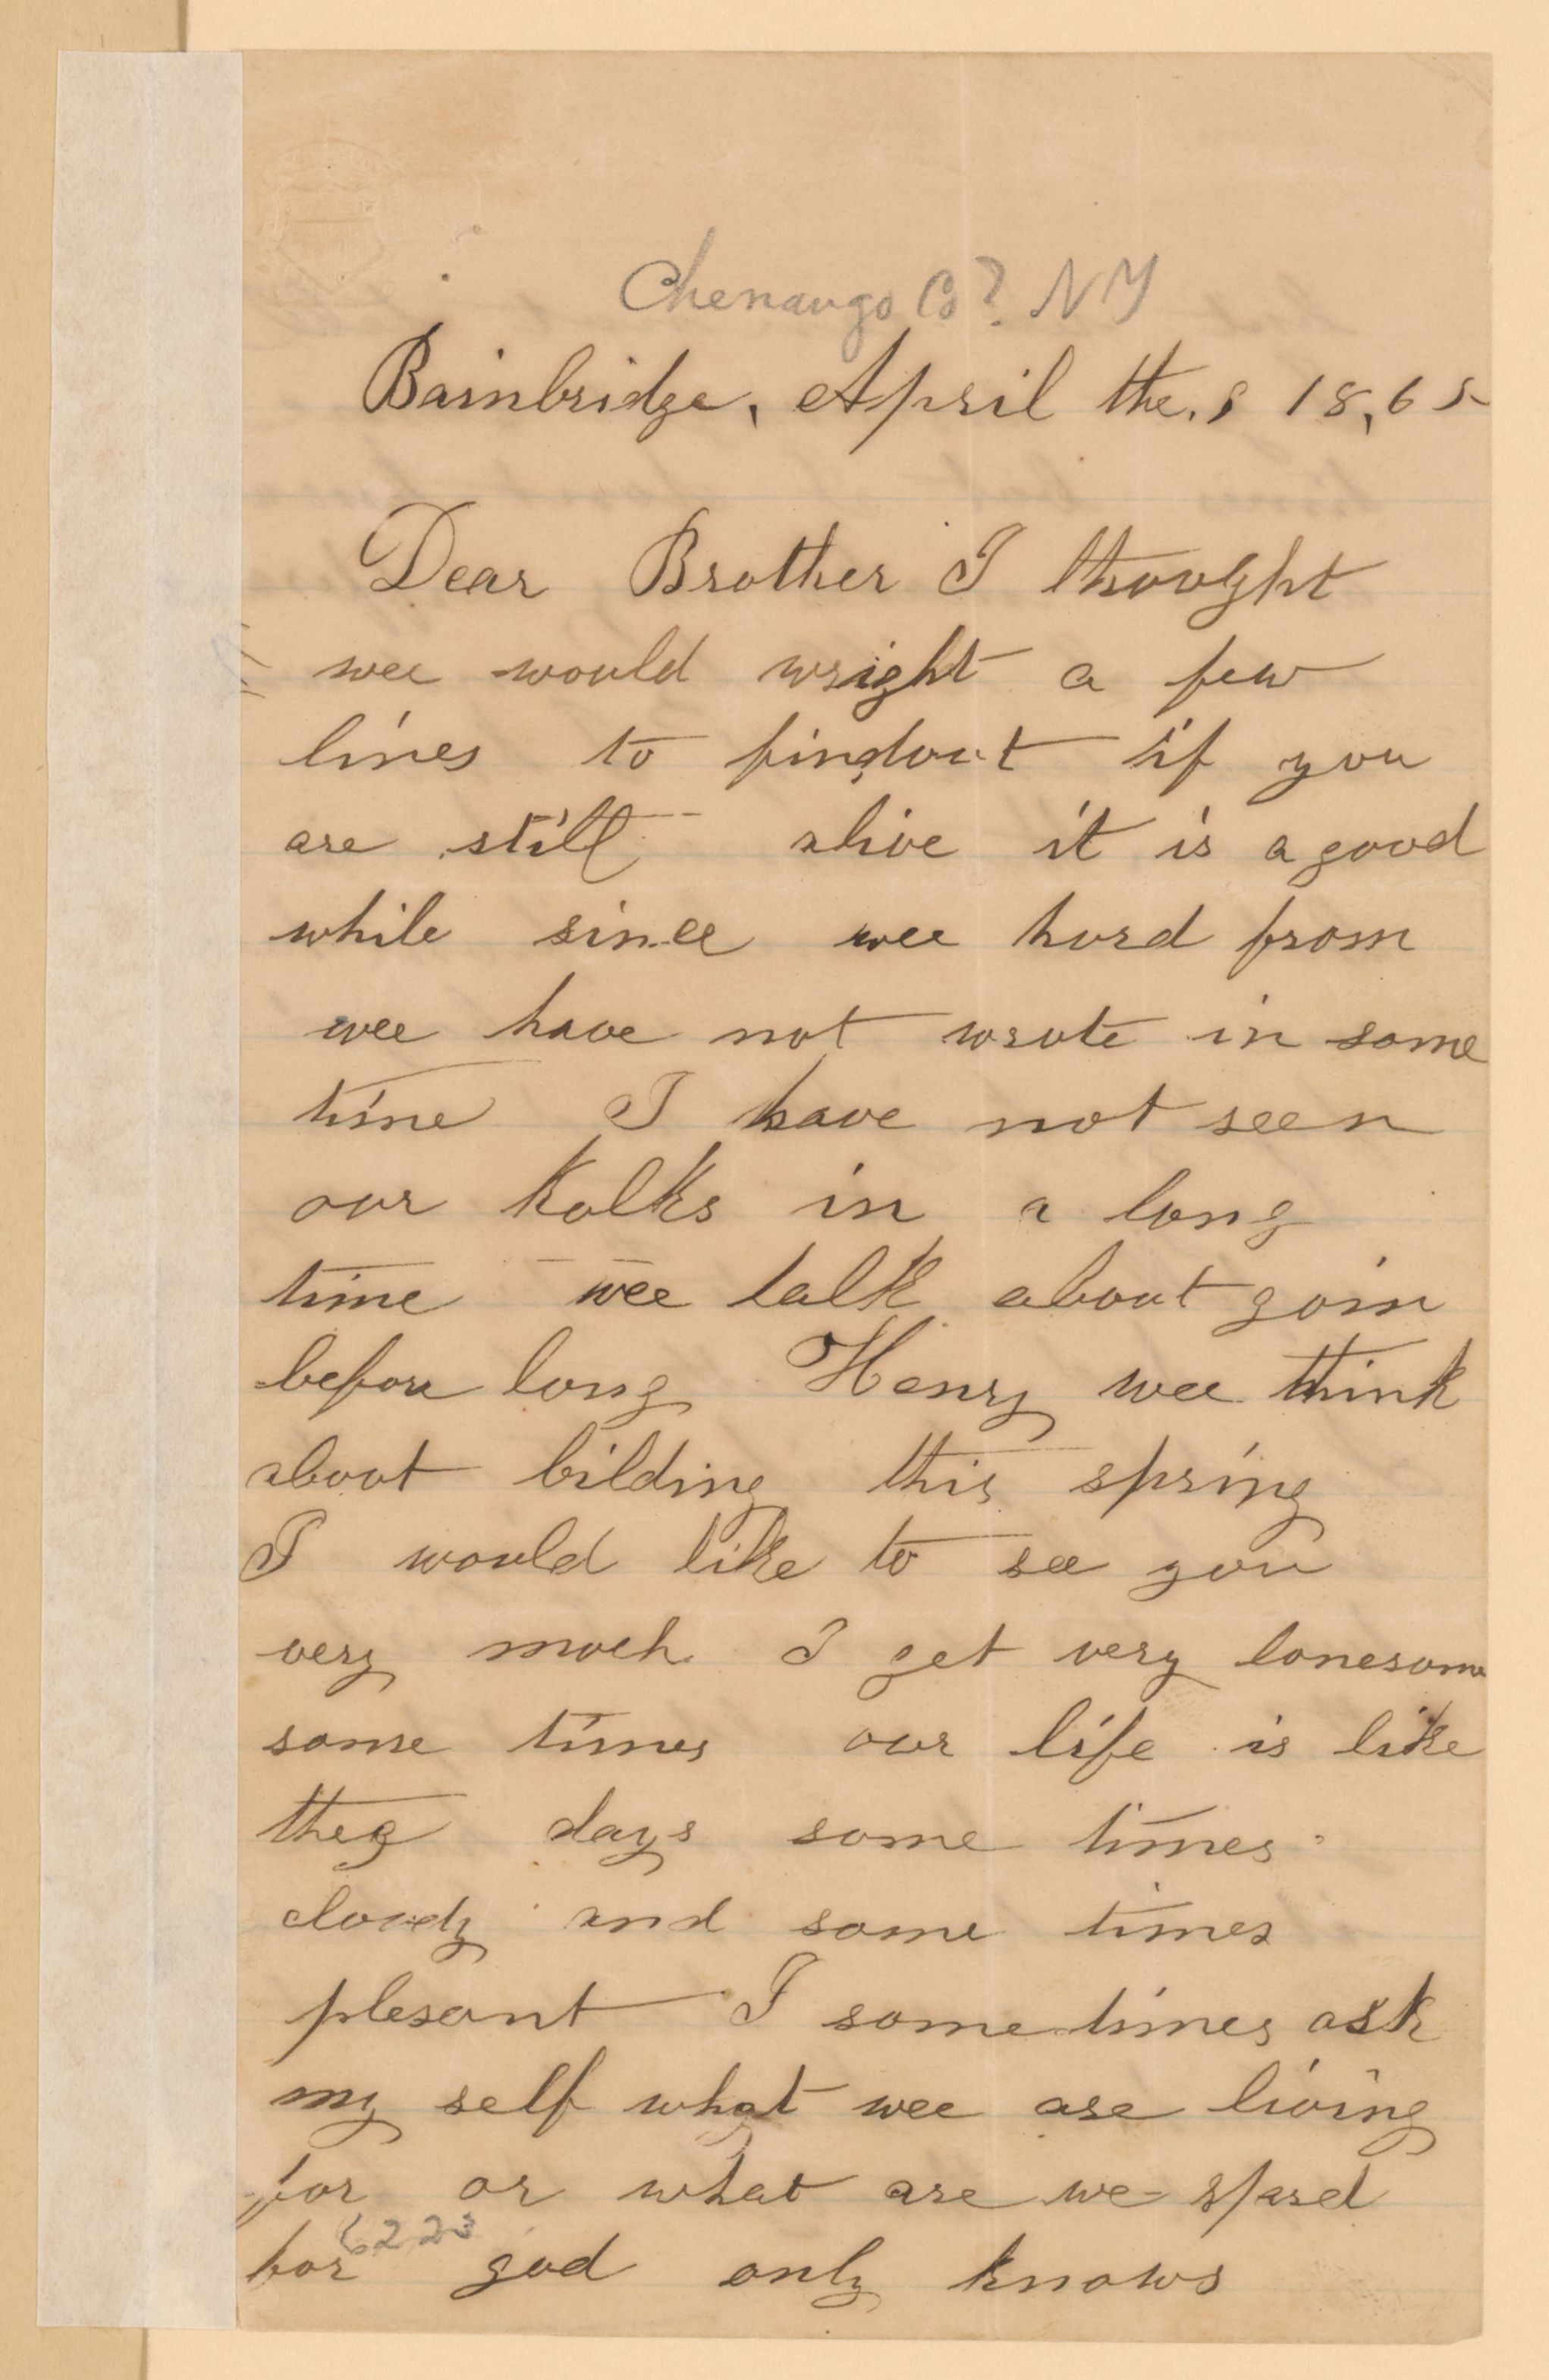 Chenango Co? NY
Bainbridge, April the, 8 18,65
Dear Brother I thought
wee would wright a few
lines to findout if you
are still alive it is a good
while since wee hurd from
wee have not wrote in some
time I have not seen
our folks in a long
time wee talk about goin
before long Henry wee think
about bilding this spring
I would like to see you
very much I get very lonesome
some times our life is like
they days some times
cloudy and some times
plesant I some times ask
my self what wee are living
for or what are we spard
for god only knows
6223